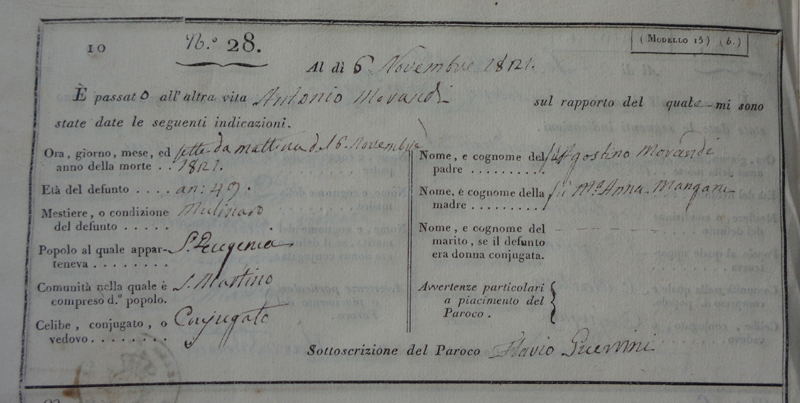 10 N.° 28. (Modello 15) (b.)
Al dì 6 Novembre 1821.
È passato all'altra vita Antonio Morandi sul rapporto del quale mi sono
state date le seguenti indicazioni.
Ora, giorno, mese, ed sette da mattina del 6. Novembre
anno della morte . . 1821.
Età del defunto . . . . an: 49.
Mestiere, o condizione Mulinaro
del defunto . . . . .
Popolo al quale appar- S. Eugenia
teneva . . . . . . .
Comunità nella quale è S. Martino
compreso d.° popolo.
Celibe, conjugato, o Conjugato
vedovo . . . . . . . .
Nome, e cognome del fu Agostino Morandi
padre . . . . . . . . .
Nome, e cognome della fu Mª Anna Mangani
madre . . . . . . . . .
Nome, e cognome del
marito, se il defunto
era donna conjugata.
Avvertenze particolari
a piacimento del
Paroco .
Sottoscrizione del Paroco Flavio Guerrini